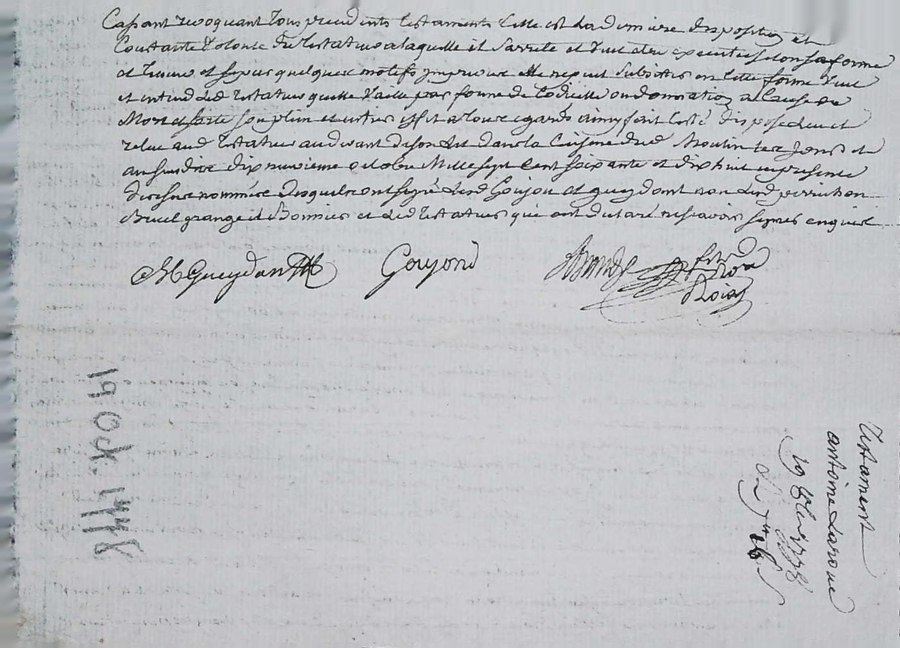 Cassant revoquant tous precedents testaments cette est sa derniere disposition et
Constante Volonté du testateur a laquelle il s'arrete et veut etre executée selon sa forme
et teneur et si pour quelques motifs imprevue elle ne peut subsister en cette forme veut
et entend led testateur quelle vaille par forme de Codicille ou donnation a Cause de
Mort et sorte son plein et entier effet a leur egard ainsy fait Cest disposé leu et
relue aud testateur au devant de son lit dans la Cuisine dud Moulin les Jour et
an susdits dix neuvieme octobre Mille sept Cent soixante et dix huit en presence
signé Goujon et gueydant non
et led testateur qui ont declaré ne scavoir signer enquis
Gueydan
Goujond
19 Oct. 1778
Testament
antoine Laroue
19 8bre 1778